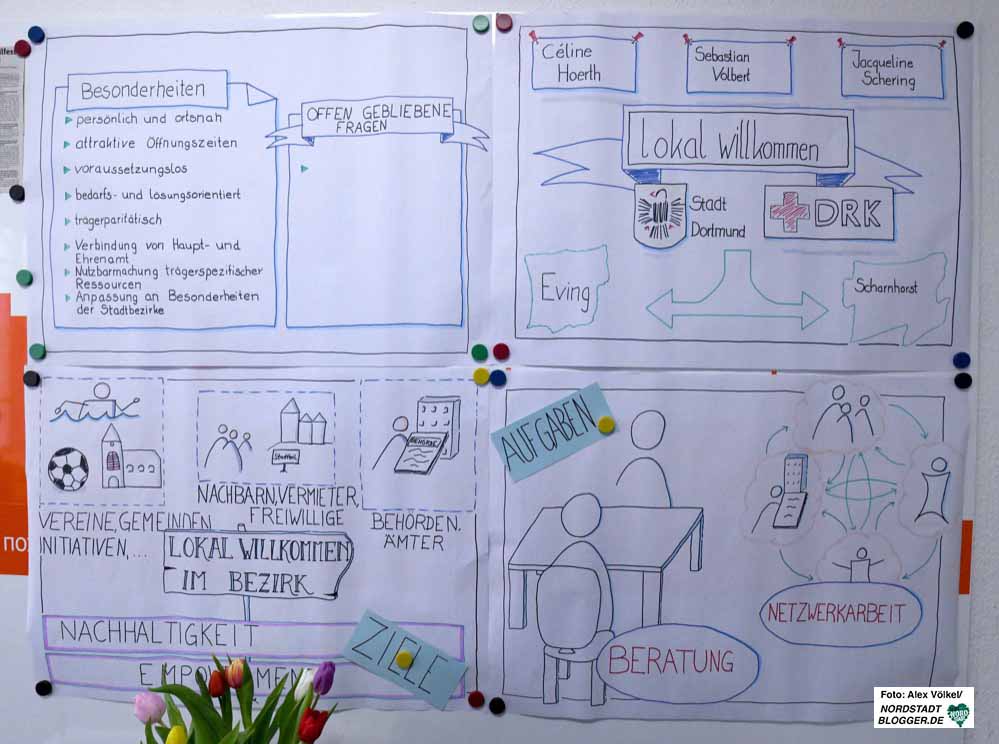 Besonderheiten
persönlich und ortsnah
attraktive Öffnungszeiten
voraussetzungslos
bedarfs- und lösungsorientiert
trägerparitätisch
Verbindung von Haupt- und
Ehrenamt
Nutzbarmachung trägerspezifischer
Ressourcen
Anpassung an Besonderheiten
der Stadtbezirke
OFFEN GEBLIEBENE
FRAGEN
Céline
Hoerth
Sebastian
Volbert
Jacqueline
Schering
lokal willkommen
Stadt
Dortmund
DRK
Eving
Scharnhorst
BEHÖRDE
VEREINE, GEMEINDEN
INITIATIVEN,...
NACHBARN, VERMIETER,
FREIWILLIGE
BEHÖRDEN,
ÄMTER
LOKAL WILLKOMMEN
IM BEZIRK
NACHHALTIGKEIT
ZIELE
AUFGABEN
BERATUNG
NETZWERKARBEIT
Foto: Alex Völkel/
NORDSTADT
BLOGGER.DE